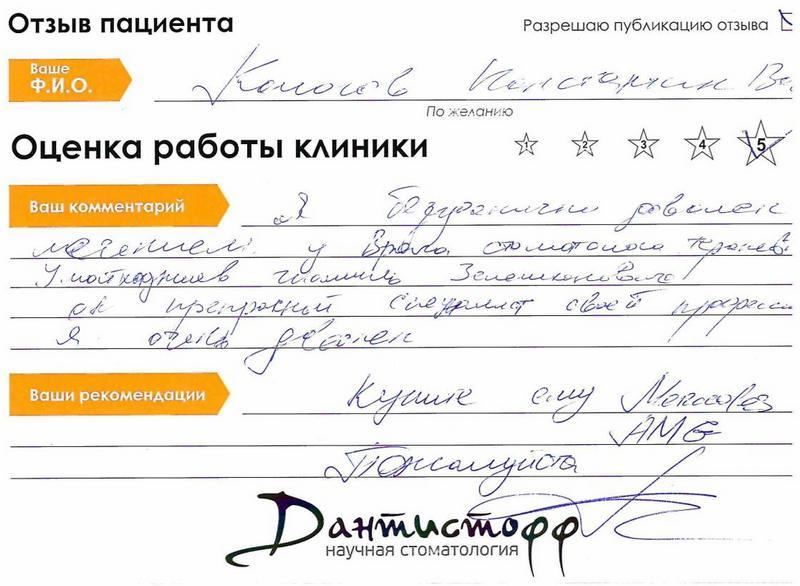 Отзыв пациента
Разрешаю публикацию отзыва
Ваше
Ф.И.О.
Колосов Константин Ва
По желанию
Оценка работы клиники
1 2 3 4 5
Ваш комментарий
Я безгранично доволен
лечением у Врача стоматолога
он прекрасный специалист своей професси
Я очень доволен
Ваши рекомендации
Купите ему
АМG
Пожалуйста
Дантистофф
научная стоматология